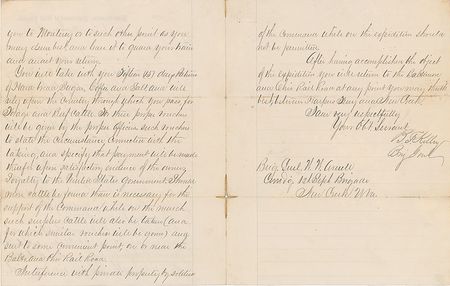 you to Monterey or to such other point as you
may direct and leave it to guard your train
and await your return.
You will take with you fifteen (15) days rations
of Hard Bread, Sugar, Coffee and Salt and will
rely upon the Country through which you pass for
Forage and Beef Cattle. For these proper vouchers
will be given by the proper officers such vouchers
to state the circumstances connected with the
taking, and specify that payment will be made
thereof upon satisfactory evidence of the owners
Loyalty to the United States Government. Should
more cattle be found than is necessary for the
support of the Command while on the march
such surplus cattle will also be taken (and
for which similar vouchers will be given) and
sent to some convenient point, on or near the
Balto and Ohio Rail Road.
Interference with private property by soldiers
of the command while on the expedition should
not be permitted.
After having accomplished the object
of the expedition you will return to the Baltimore
and Ohio Rail Road at any point you may
between Harpers Ferry and New Creek.
I am very respectfully
Your Obt Servant
B. F. Kelley
Brig Genl
Brig. Genl. W. W. Averell
Comdg 1st Sept Brigade
New Creek W Va